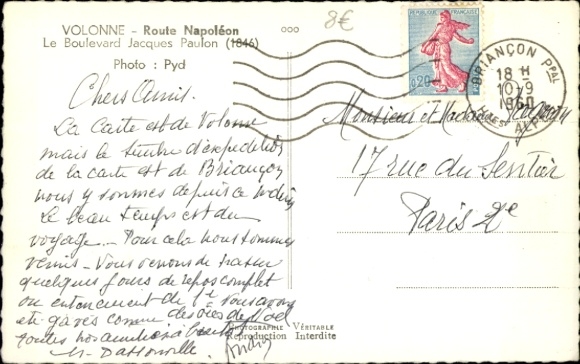 VOLONNE – Route Napoléon
Le Boulevard Jacques Paulon (1846)
Photo : Pyd
8€
RÉPUBLIQUE FRANÇAISE
0,20
BRIANÇON PPAL
18 H
10-9
1960
ALPES
Chers Amis.
La Carte est de Volonne
mais le timbre d'expédition
de la carte est de Briançon
nous y sommes depuis ce
Le beau temps est du
voyage... Pour cela nous sommes
vernis - Nous venons de passer
quelques jours de repos complet
ou entièrement de nous avons
été gavés comme des oies de Noël
toutes nos
Monsieur et Madame
17 rue du Sentier
Paris 2e
PHOTOGRAPHIE VÉRITABLE
Reproduction Interdite